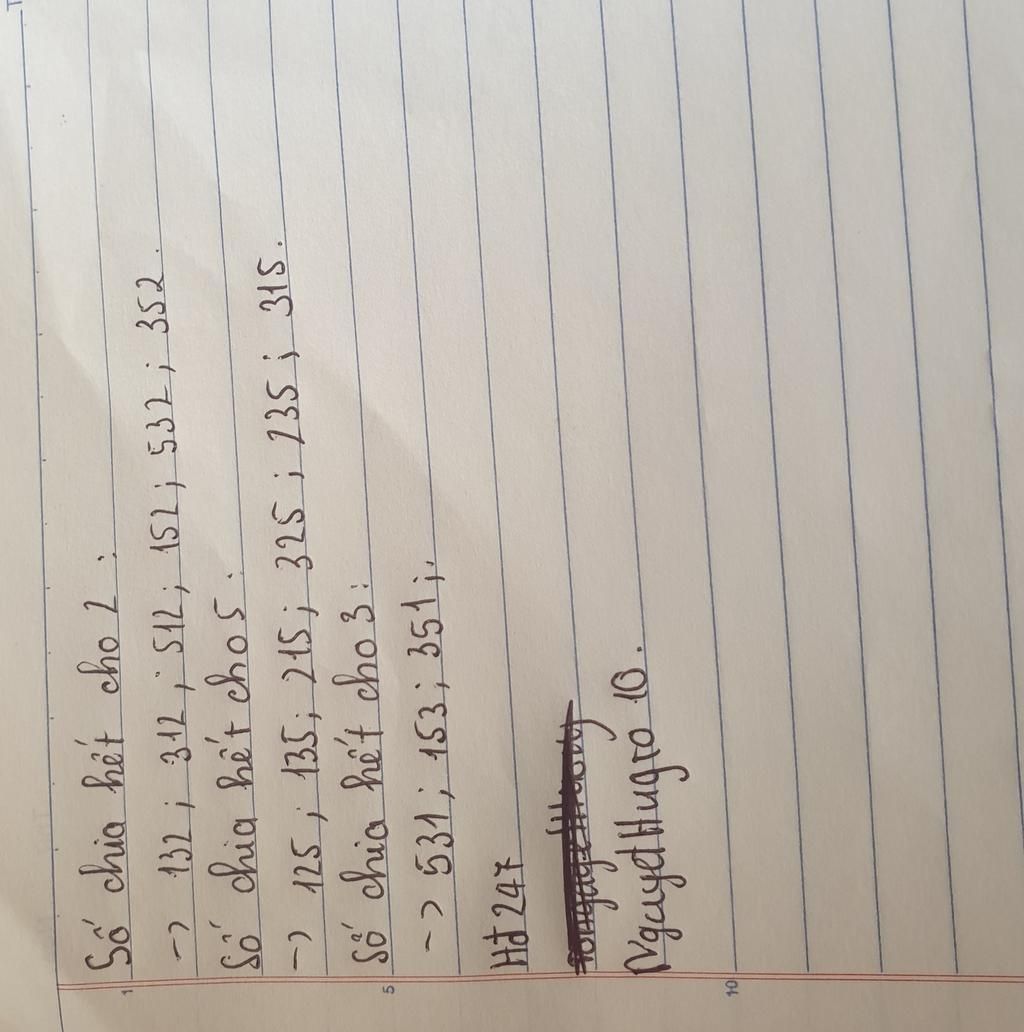 Số chia hết cho 2 :
-> 132 ; 312 ; 512 ; 152 ; 532 ; 352 .
Số chia hết cho 5 :
-> 125 ; 135 ; 215 ; 325 ; 235 ; 315 .
Số chia hết cho 3 :
-> 531 ; 153 ; 351 ; .
Hđ 247
NguyetHugro 10 .
1
5
10